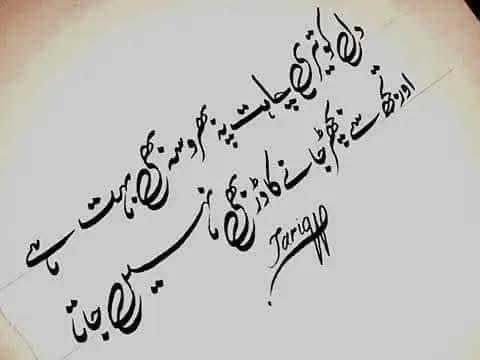 دل کو تیری چاہت پہ بھروسہ بھی بہت ہے
اور تجھ سے بچھڑ جانے کا ڈر بھی نہیں جاتا
Tariq